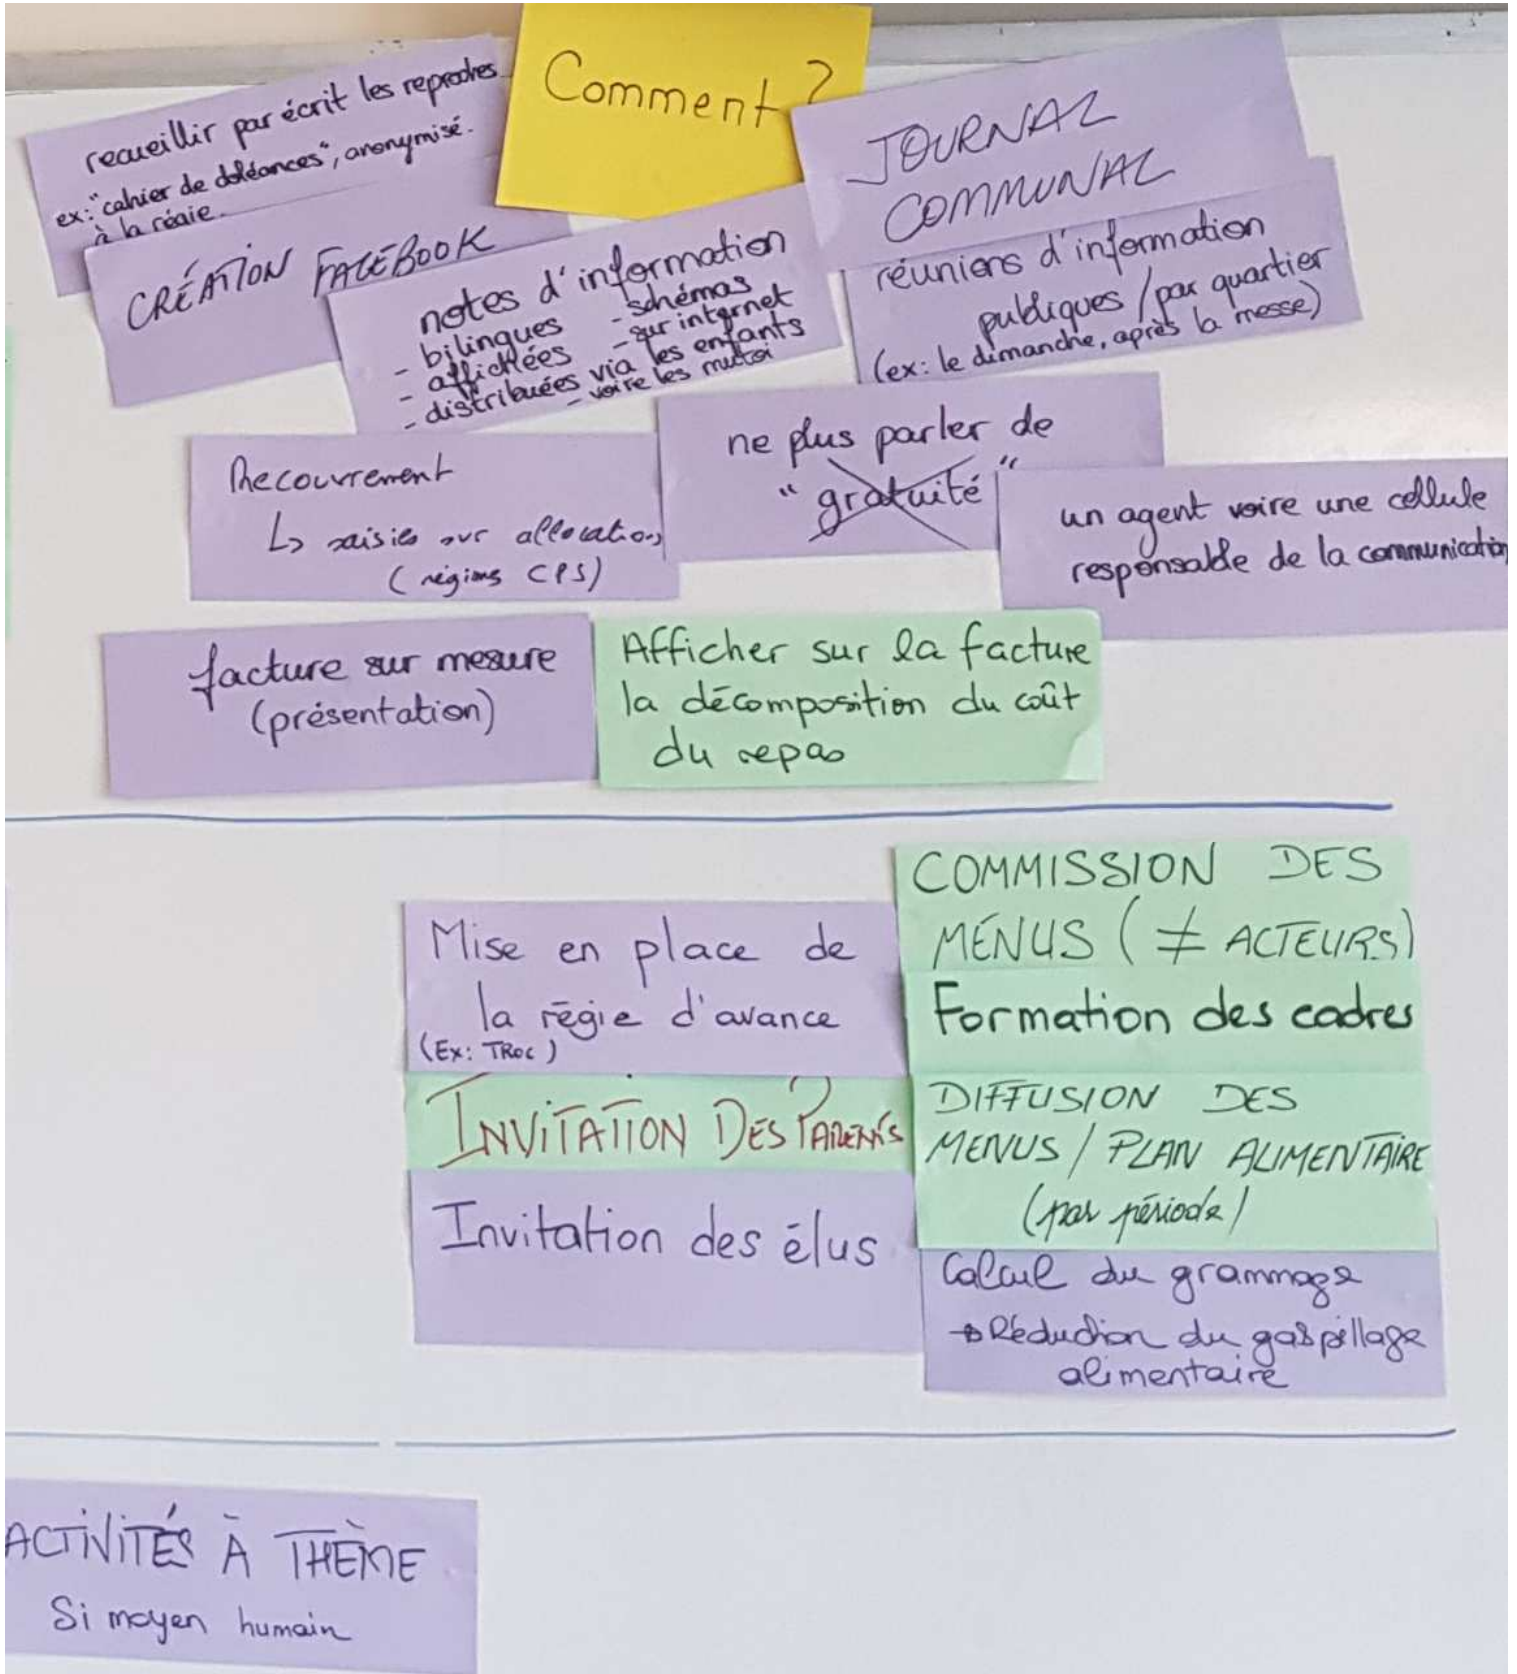 Comment ?
recueillir par écrit les reproches
ex: "cahier de doléances", anonymisé.
à la régie.
CRÉATION FACEBOOK
notes d'information
- bilingues
- schémas
- affichées
- sur internet
- distribuées via les enfants
- voire les mutoi
JOURNAL
COMMUNAL
réunions d'information
publiques / par quartier
(ex: le dimanche, après la messe)
Recouvrement
↳ saisies sur allocations
(régims CPS)
ne plus parler de
"gratuité"
un agent voire une cellule
responsable de la communication
facture sur mesure
(présentation)
Afficher sur la facture
la décomposition du coût
du repas
Mise en place de
la régie d'avance
(Ex: TROC)
INVITATION DES PARENTS
Invitation des élus
COMMISSION DES
MENUS (≠ ACTEURS)
Formation des cadres
DIFFUSION DES
MENUS / PLAN ALIMENTAIRE
(par période)
Calcul du grammage
→ Réduction du gaspillage
alimentaire
ACTIVITÉS À THÈME
Si moyen humain